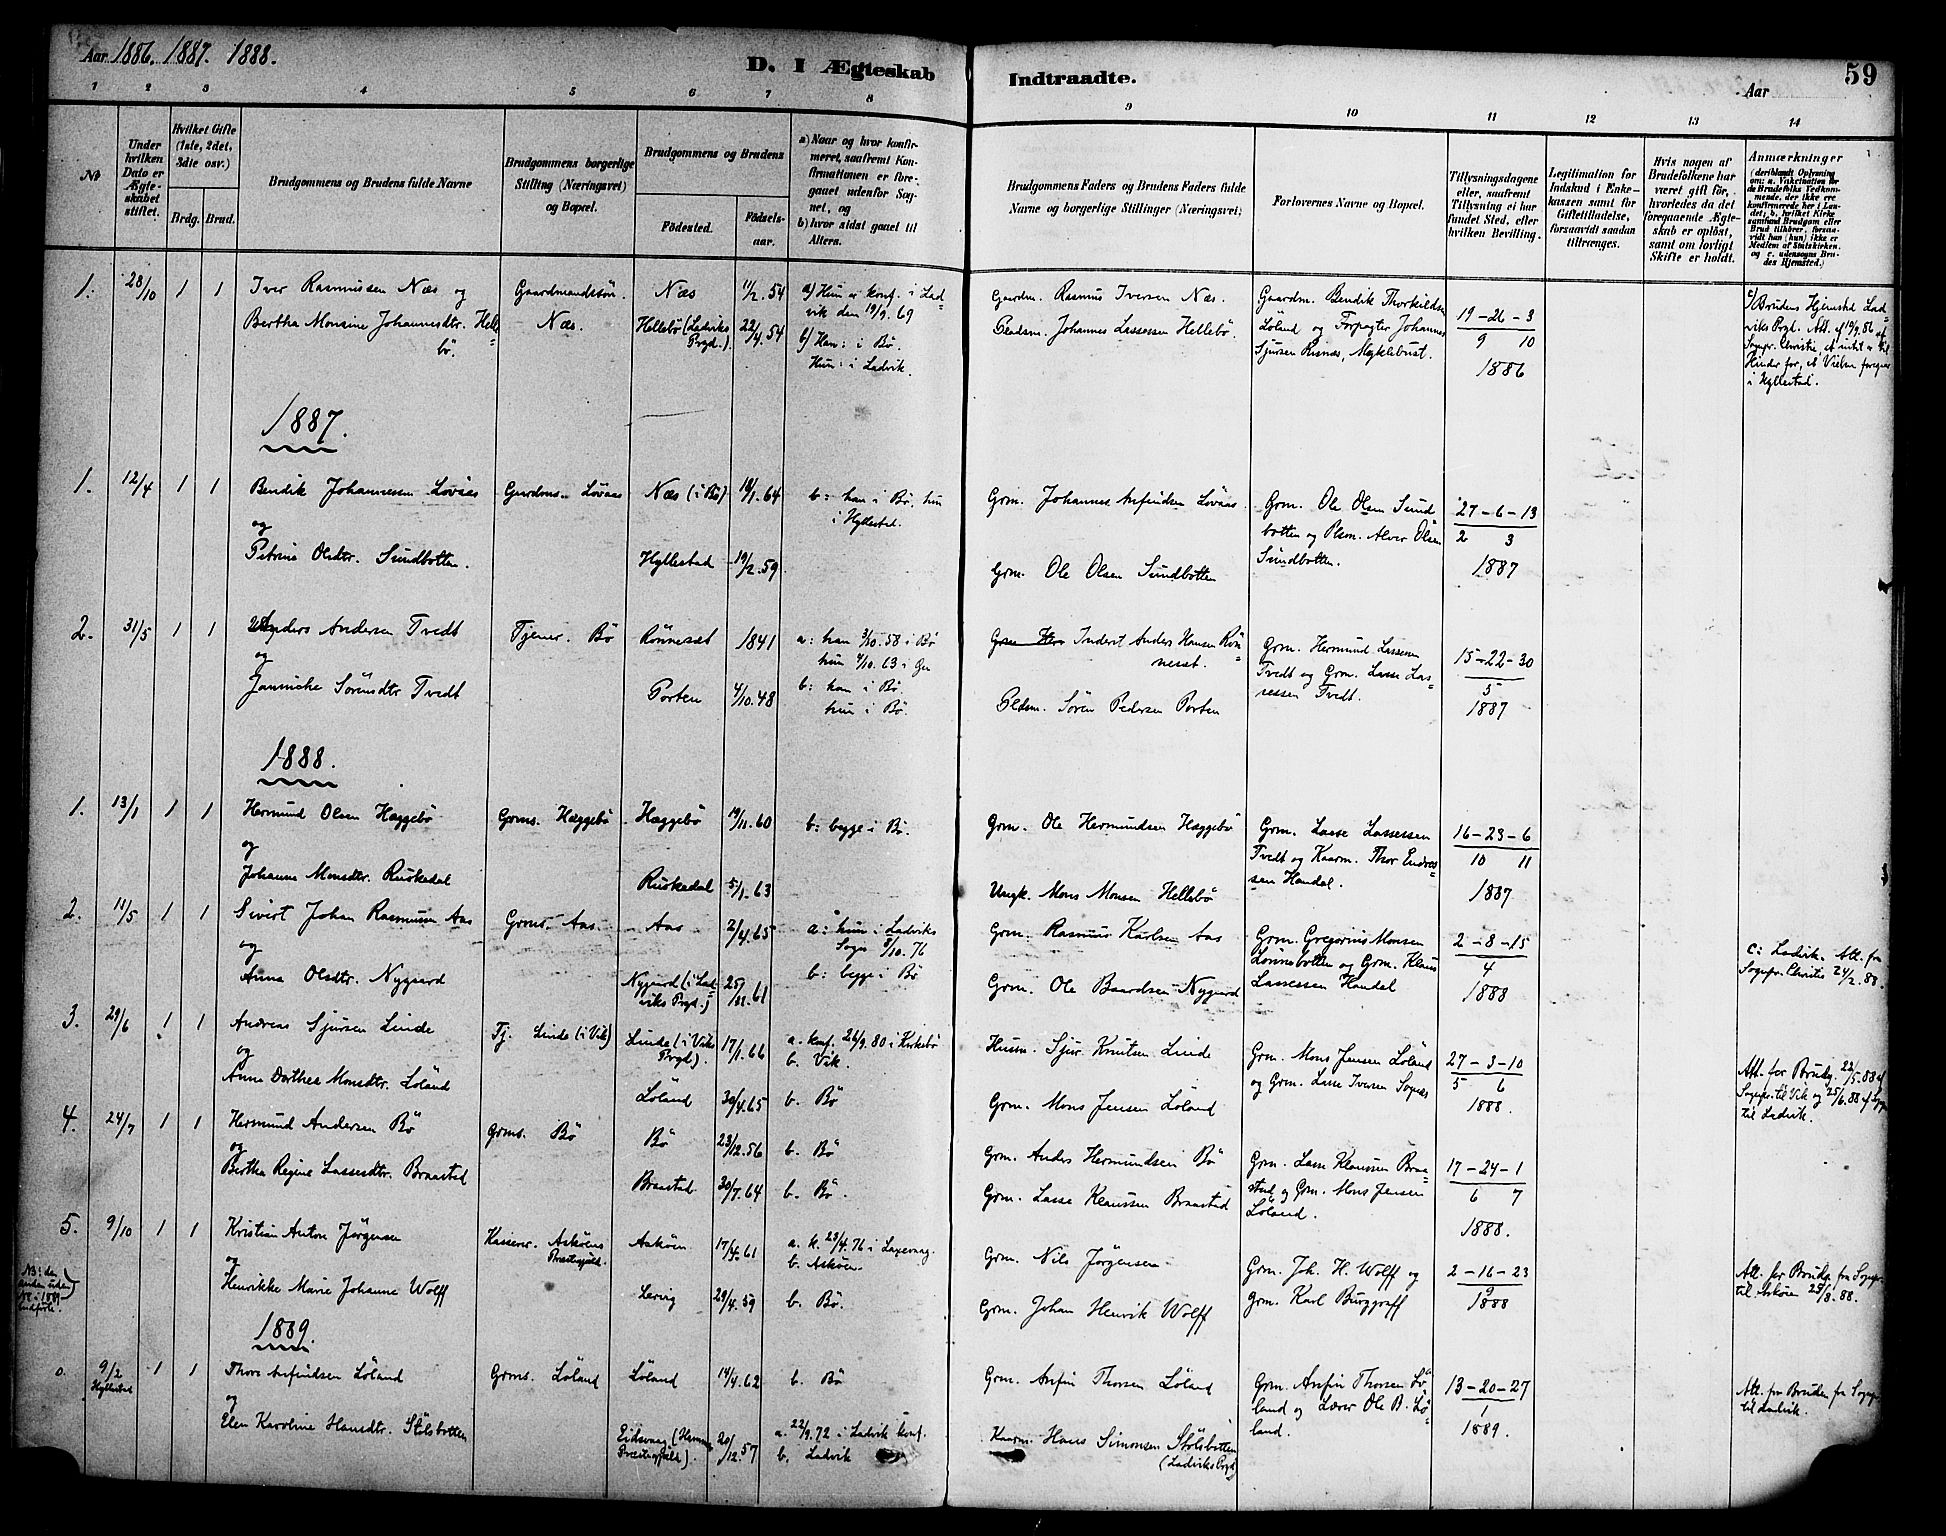 Aar 1886. 1887. 1888.
D. I Ægteskab Indtraadte.
59
Aar
1 2 3 4 5 6 7 8 9 10 11 12 13 14
No
Under hvilken Dato er Ægteskabet stiftet.
Hvilket Gifte (1ste, 2det, 3die osv.)
Brdg. Brud.
Brudgommens og Brudens fulde Navne
Brudgommens borgerlige Stilling (Næringsvei) og Bopæl.
Brudgommens og Brudens
Födested. Födselsaar.
a) Naar og hvor konfirmeret, saafremt Konfirmationen er foregaaet udenfor Sognet, og
b) hvor sidst gaaet til Alters.
Brudgommens Faders og Brudens Faders fulde Navne og borgerlige Stillinger (Næringsvei)
Forlovernes Navne og Bopæl.
Tillysningsdagene eller, saafremt Tillysning ei har fundet Sted, efter hvilken Bevilling.
Legitimation for Indskud i Enkekassen samt for Giftetilladelse, forsaavidt saadan tiltrænges.
Hvis nogen af Brudefolkene har været gift för, hvorledes da det foregaaende Ægteskab er oplöst, samt om lovligt Skifte er holdt.
Anmærkninger (deriblandt Oplysning om: a. Vakcination for de Brudefolks Vedkommende, der ikke ere konfirmerede her i Landet; b. hvilket Kirkesamfund Brudgom eller Brud tilhörer, forsaavidt han (hun) ikke er Medlem af Statskirken, og c. udensogns Brudes Hjemsted.)
1. 28/10 1 1 Iver Rasmussen Næs og Gaardmandssön. Næs 11/2.54 a) Hun er konf. i Ladvik den 19/9.69
Bertha Monsine Johannesdtr. Hellebö. Næs. Hellebö (Ladviks Prgd.) 22/4.54 b) Han: i Bö. Hun: i Ladvik.
Gaardm. Rasmus Iversen Næs.
Pladsm. Johannes Lassessen Hellebö.
Gaardm. Bendik Thorkildsen Löland og Forpagter Johannes Sjursen Risnes, Myklebust.
19-26-3
9 10
1886
c) Brudens Hjemsted Ladviks Prgd. Att. af 19/9.86 af Sognepr. Christie, at intet er til Hinder for, at Vielsen foregaar i Hyllestad.
1887.
1. 12/4 1 1 Bendik Johannessen Lövaas Gaardms. Lövaas Næs (i Bö) 18/1.64 b: han i Bö, hun i Hyllestad.
og
Petrine Olsdtr. Sundbotten. Hyllestad 19/2.59
Grm. Johannes Anfindsen Lövaas.
Grm. Ole Olsen Sundbotten
Grm. Ole Olsen Sundbotten og Plsm. Alver Olsen Sundbotten.
27-6-13
2 3
1887
2. 31/5 1 1 Anders Andersen Tvedt Tjener. Bö Rönneset 1841 a: han 3/10.58 i Bö
og hun 4/10.63 i
Jannicke Sörensdtr Tvedt Porten 4/10.48 b: han i Bö.
hun i Bö.
Inderst Anders Hansen Rönneset.
Pladsm. Sören Pedersen Porten
Grm. Hermund Lassesen Tvedt og Grm. Lasse Lassessen Tvedt.
15-22-30
5
1887
1888.
1. 13/1 1 1 Hermund Olsen Hæggebö Grms. Hæggebö Hæggebö 19/11.60 b: begge i Bö.
og
Johanne Monsdtr. Ruskedal Ruskedal 5/1.63
Grm. Ole Hermundsen Hæggebö
Ungk. Mons Monsen Hellebö
Grm. Lasse Lassessen Tvedt og Kaarm. Thor Endresen Handal.
16-23-6
10 11
1887
2. 11/5 1 1 Sivert Johan Rasmussen Aas Grms. Aas Aas 2/4.65 a: hun i Ladviks Sogn 8/10.76
og
Anna Olsdtr. Nygaard Nygaard (i Ladviks Prgd.) 25/11.61 b: begge i Bö
Grm. Rasmus Karlsen Aas
Grm. Ole Baardsen Nygaard
Grm. Gregorius Monsen Lönnebotten og Grm. Klaus Lassessen Handal
2-8-15
4
1888
c: Ladvik. Att. fra Sognepr. Christie 24/2.88.
3. 29/6 1 1 Andreas Sjursen Linde Tj. Linde (i Vik) Linde (i Viks Prgd). 17/1.66 a. konf. 26/9.80 i Kirkebö
og b. Vik.
Anne Dorthea Monsdtr. Löland Löland 30/4.65 b. Bö
Husm. Sjur Knutsen Linde
Grm. Mons Jensen Löland
Grm. Mons Jensen Löland og Grm. Lasse Iversen Sognnes
27-3-10
5 6
1888.
Att. for Brudg. 22/5.88 af Sognepr. til Vik og 25/6.88 af Sognepr. til Ladvik.
4. 24/7 1 1 Hermund Andersen Bö Grms. Bö Bö 23/12.56 b. Bö
og
Bertha Regine Lassesdtr. Braastad Braastad 30/7.64 b. Bö.
Grm. Anders Hermundsen Bö
Grm. Lasse Klaussen Braastad
Grm. Lasse Klaussen Braastad og Grm. Mons Jensen Löland.
17-24-1
6 7
1888.
5. 9/10 1 1 Kristian Anton Jörgensen Kasserer. Asköens Præstegjeld. Asköen 17/4.61 a. k. 23/4.76 i Laxevaag.
og b. Asköen.
Henrikke Marie Johanne Wolff Lervig 29/4.59 b. Bö.
Grm. Nils Jörgensen.
Grm. Johan Henrik Wolff
Grm. Joh. H. Wolff og Grm. Karl Burggraff
2-16-23
9
1888
Att. for Brudg. fra Sognepr. til Asköen 25/8.88.
NB: den anden uden No i 1889 indförte.
1889.
0. 9/2 Hyllestad 1 1 Thore Anfindsen Löland Grms. Löland Löland 14/4.62 b. Bö
og
Elen Karoline Hansdtr. Stölsbotten Eidsvaag (Hammers Præstegjeld). 20/12.57 a. 22/9.72 i Ladvik konf.
b. Ladvik
Grm. Anfin Thorsen Löland
Kaarm. Hans Simonsen Stölsbotten (Ladviks Prgd)
Grm. Anfin Thorsen Löland og Lærer Ole B. Löland.
13-20-27
1
1889.
Att. for Bruden fra Sognepr. til Ladvik.